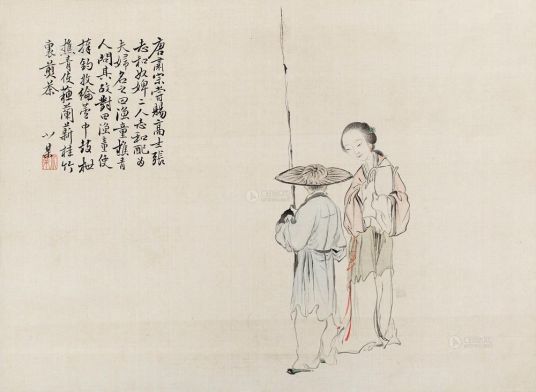 唐肅宗嘗賜高士張
志和奴婢二人志和配為
夫婦名之曰漁童樵青
人問其故對曰漁童使
捧釣收綸蘆中鼓枻
樵青使蘇蘭薪桂竹
裏煎茶